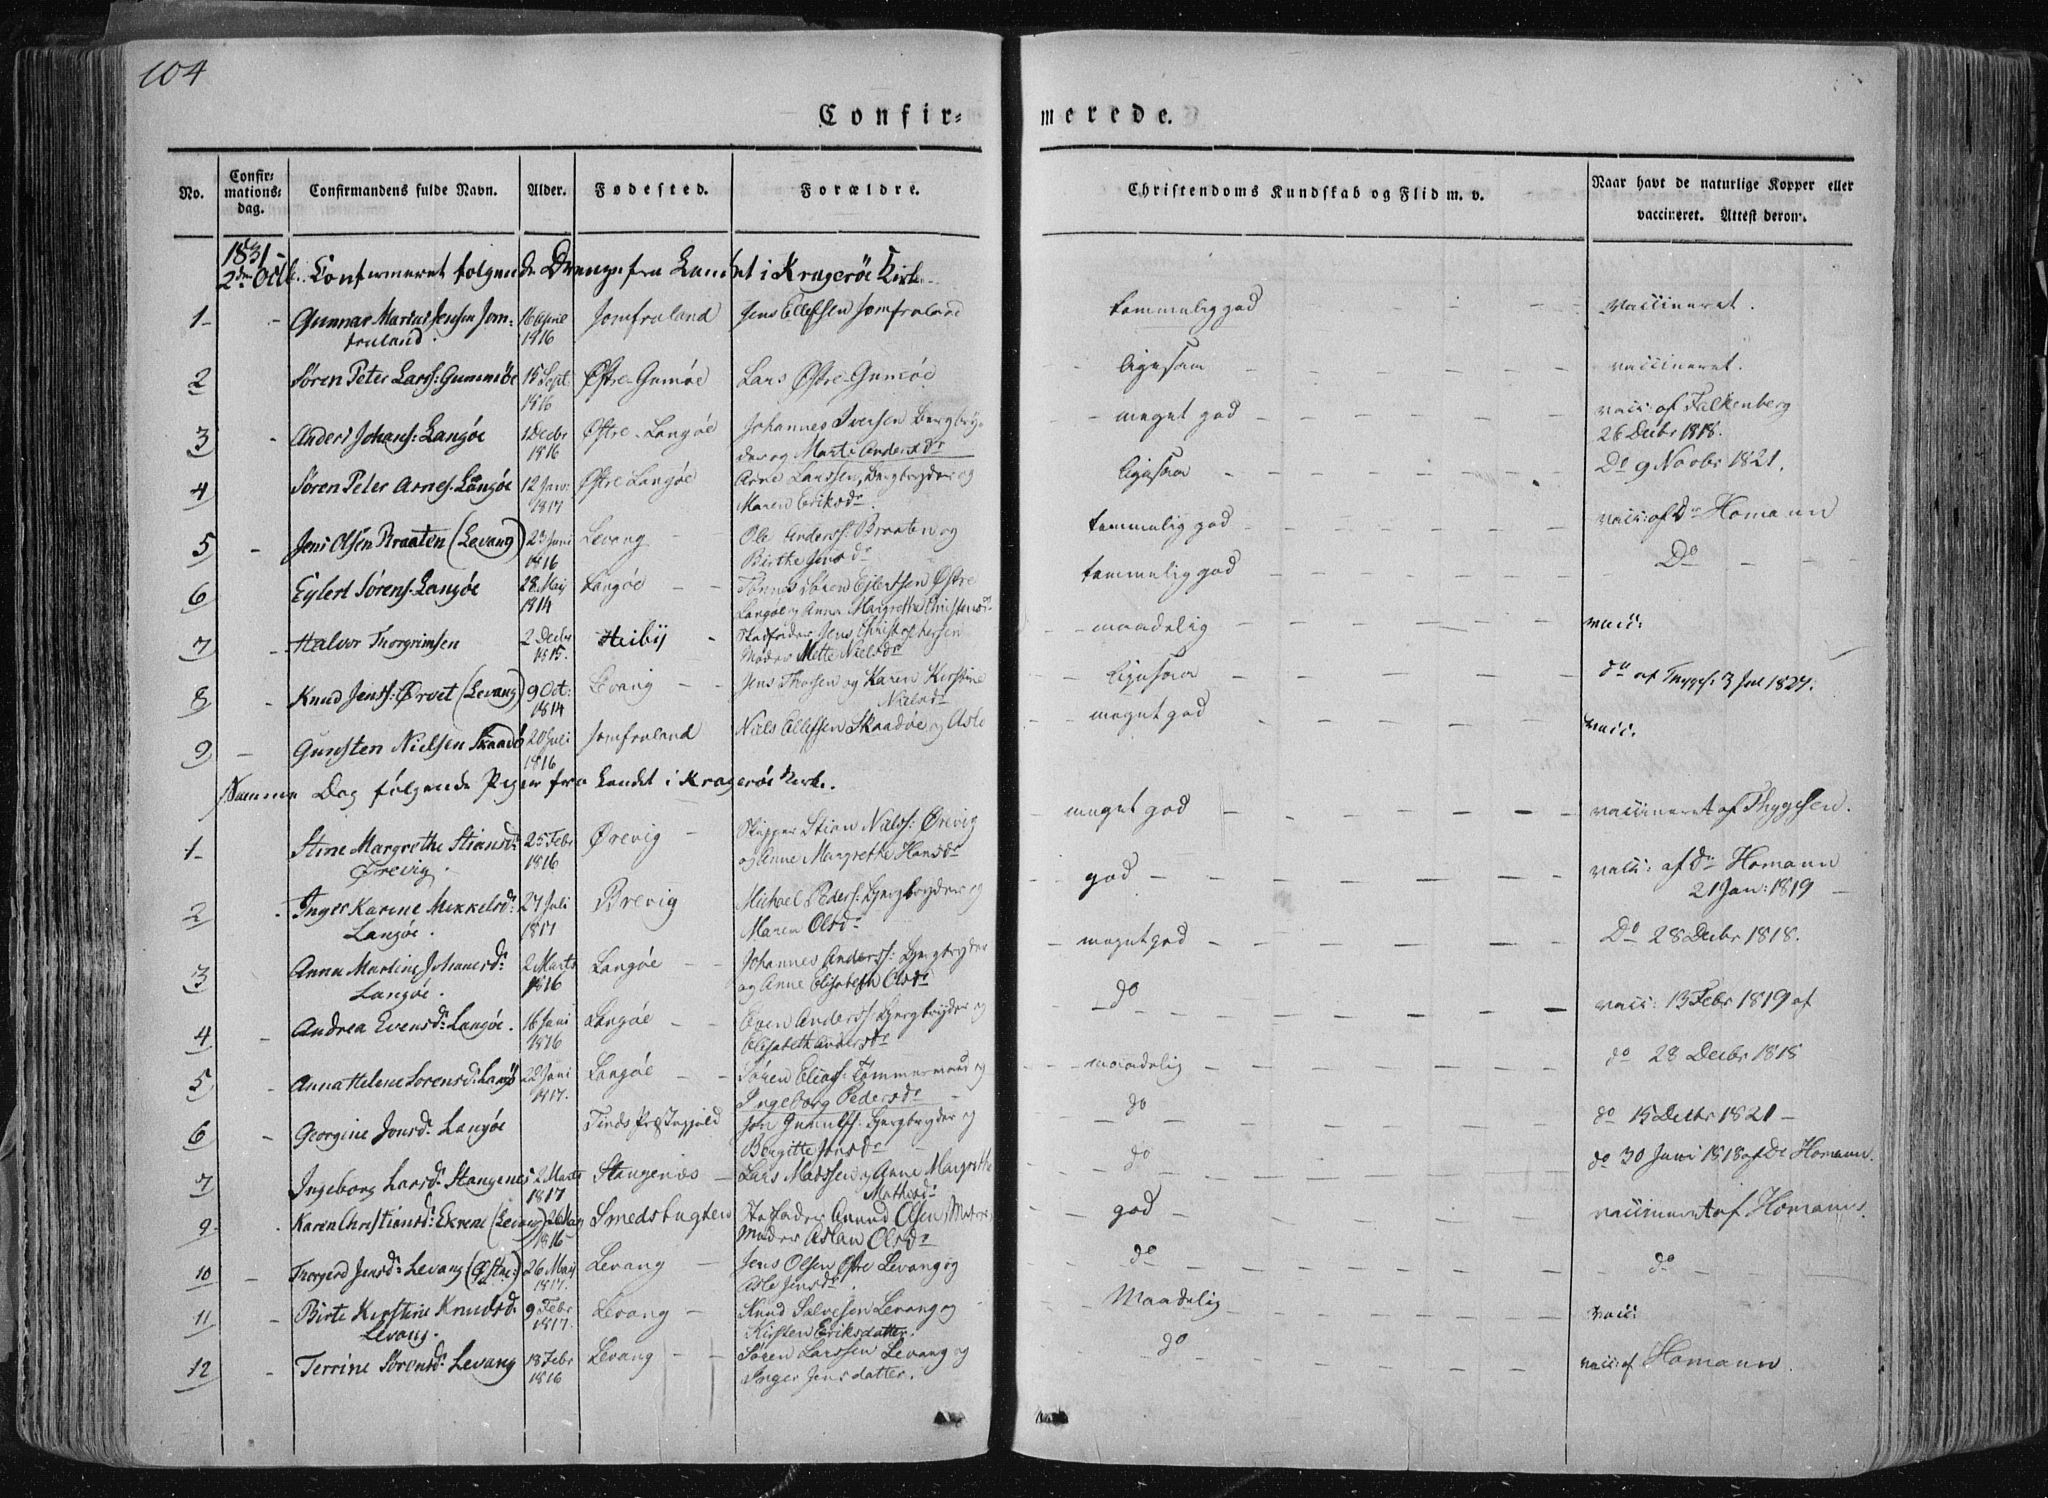 104
Confir- merede.
No.
Confir-
mations-
dag.
Confirmandens fulde Navn.
Alder.
Fødested.
Forældre.
Christendoms Kundskab og Flid m. v.
Naar havt de naturlige Kopper eller
vaccineret. Attest derom.
1831
2den Octb. Confirmeret følgende Drenge fra Landet i Kragerøe Kirke
1 Gunnar Marius Jensen Jom- 16 April Jomfruland Jens Ellefsen Jomfruland temmelig god vaccineret.
fruland. 1816
2 Søren Peter Larss: Gummøe 15 Sept. Østre Gumøe Lars Østre Gumøe ligesaa vaccineret.
1816
3 Anders Johans: Langøe 1 Decbr Østre Langøe Johannes Iversen Bergbry- meget god vacc: af Falkenberg
1816 der og Marte Andersdr 26 Decbr 1818.
4 Søren Peter Arnes. Langøe 12 Jan: Østre Langøe Arne Larssen, Bergbryder og ligesaa Do 9 Novbr 1821.
1817 Maren Eriksdr.
5 Jens Olsen Braaten (Levang) 23 Juni Levang Ole Anderss: Braaten og temmelig god vacc: af Dr Homann
1816 Birthe Jensdr
6 Eylert Sørens. Langøe 28 May Langøe Tønnes Søren Ejlertsen Østre temmelig god Do
1814 Langøe og Anna Margrethe Christensdr
7 Halvor Thorgrimsen 2 Decbr Heibÿ Stedfader Jens Christophersen maadelig vacc:
1815. Moder Mette Nielsdr
8 Knud Jenss: Ørvet (Levang) 9 Oct: Levang Jens Thorsen og Karen Kirstine ligesaa do af Thyges: 3 Jul 1827.
1814 Nielsdr
9 Gunsten Nielsen Skaadø 20 Juli Jomfruland Niels Ellefsen Skaadøe og Asle meget god vacc:
1816
Samme Dag følgende Piger fra Landet i Kragerøe Kirk.
1 Stine Margrethe Stiansdr 25 Febr Ørevig Skipper Stian Nielss: Ørevig meget god vaccineret af Thygesen.
Ørevig. 1816 og Anne Margrethe Hansdr
2 Inger Karine Mikkelsdr 27 Juli Brevig Michael Peders: Bjergbryder og god vacc: af Dr Homann
Langøe. 1817 Maren Olsdr 21 Jan: 1819
3 Anna Martine Johanesdr 2 Marts Langøe Johannes Anderss: Bjergbryder meget god Do 28 Decbr 1818.
Langøe. 1816 og Anne Elisabeth Olsdr
4 Andrea Evensdr Langøe. 16 Juni Langøe Even Anderss: Bjergbryder og do vacc: 13 Febr 1819 af
1816 Elisabeth Andersdr
5 Anna Helene Sorensdr Langø 22 Juni Langøe Søren Eliass: Tømmermand og maadelig do 28 Decbr 1818
1817. Ingeborg Pedersdr
6 Georgine Jonsdr Langøe Jon Gunulfs: Bjergbryder og do do 15 Decbr 1821
Birgitte Jonsdr
7 Ingeborg Larsdr Stangenes 2 Marts Stangenæs Lars Madssen og Anne Margrethe do do 30 Juni 1818 af Dr Homann.
1817 Mathisdr
9 Karen Christiansdr Ekrene (Levang) 26 May Smedsbugten Stedfader Anund Olsen god vaccineret af Homann.
1816 Moder Aslau Olsdr
10 Torgerd Jensdr Levang (Østre) 26 May Levang Jens Olsen Østre Levang og do do
1817. Asle Jensdr.
11 Birte Kirstine Knudsdr 9 Febr Levang Knud Salvesen Levang og Maadelig vacc:
Levang. 1817. Kirsten Eriksdatter.
12 Terrine Sörensdr Levang 18 Febr Levang Søren Larssen Levang og do vacc: af Homann.
1816 Inger Jensdatter.